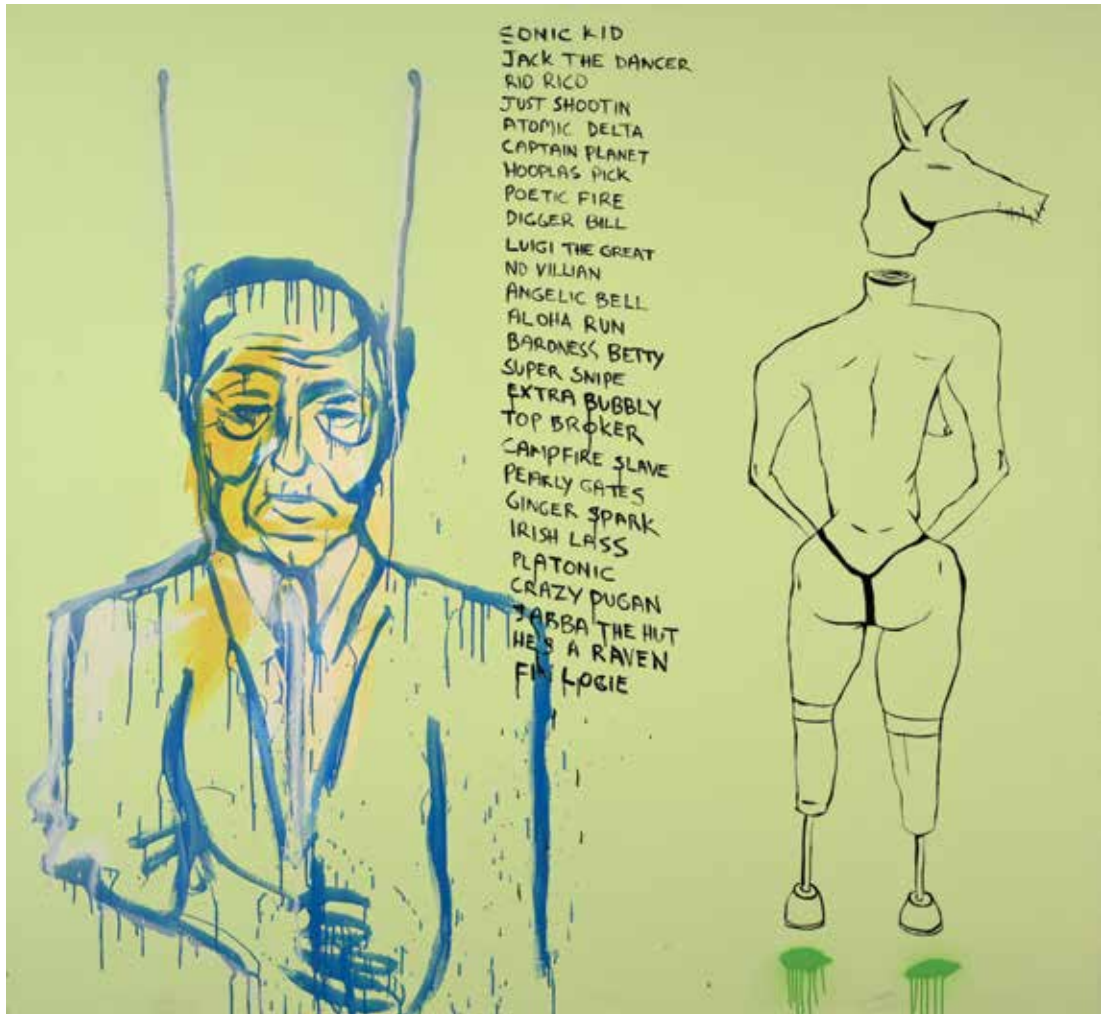 SONIC KID
JACK THE DANCER
RIO RICO
JUST SHOOTIN
ATOMIC DELTA
CAPTAIN PLANET
HOOPLAS PICK
POETIC FIRE
DIGGER BILL
LUIGI THE GREAT
NO VILLIAN
ANGELIC BELL
ALOHA RUN
BARONESS BETTY
SUPER SNIPE
EXTRA BUBBLY
TOP BROKER
CAMPFIRE SLAVE
PEARLY GATES
GINGER SPARK
IRISH LASS
PLATONIC
CRAZY DUGAN
JABBA THE HUT
HE'S A RAVEN
LOGIE